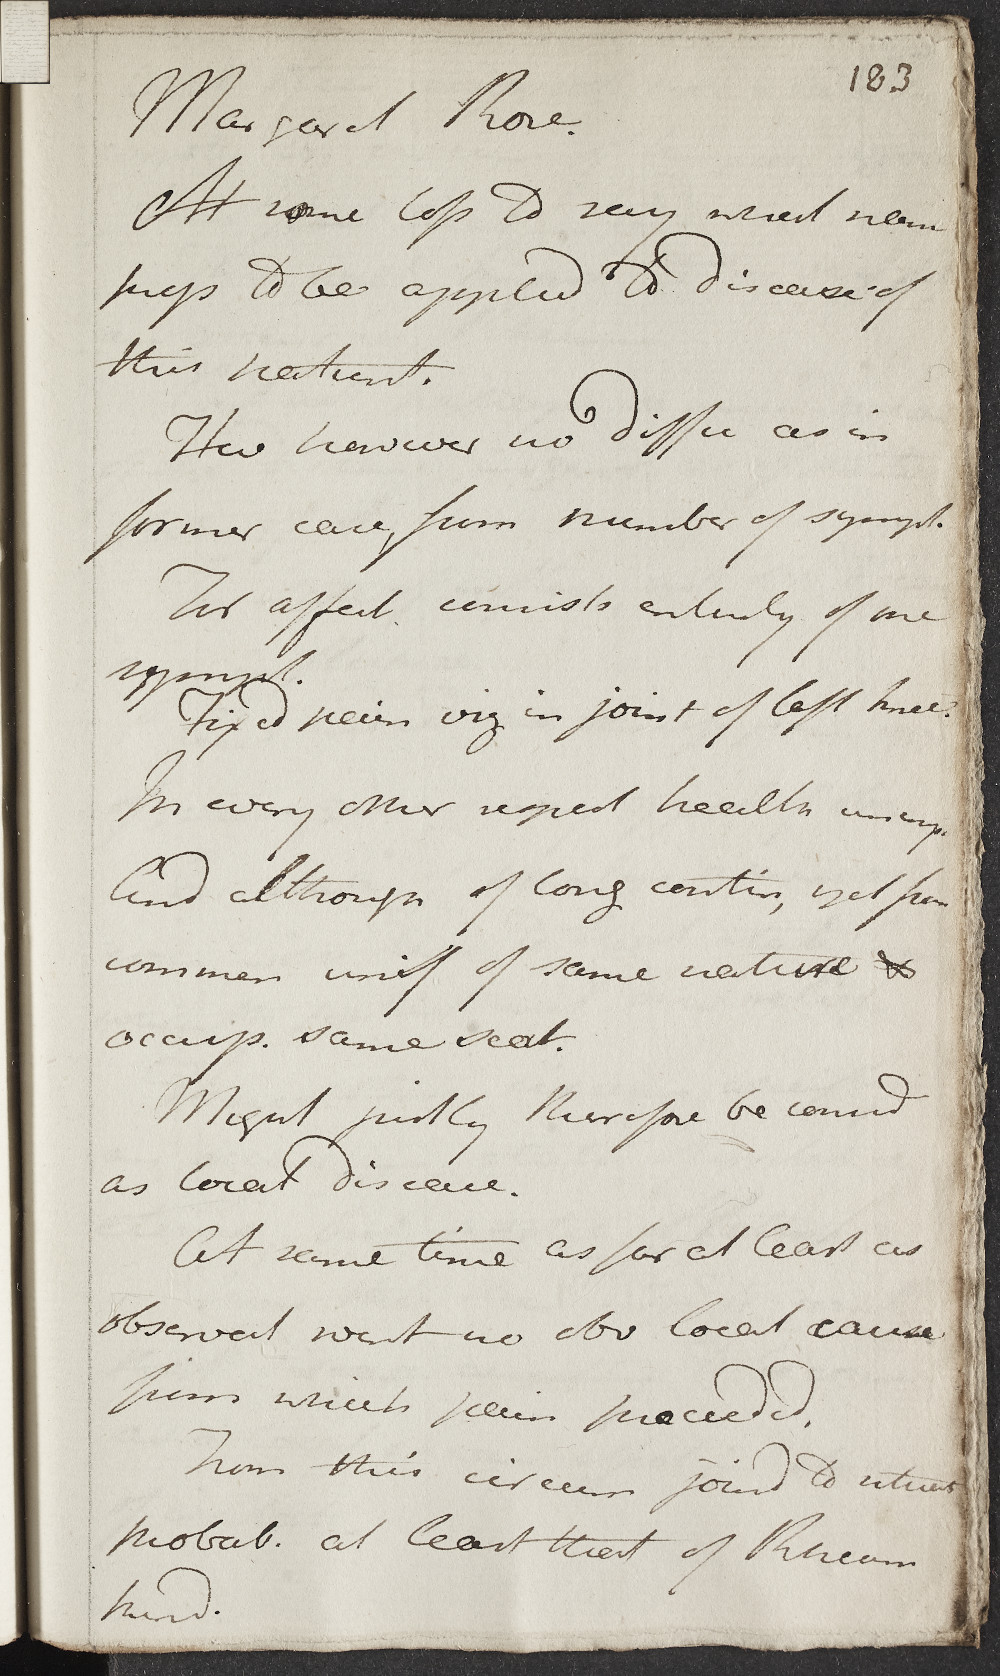 183
Margaret Rose.
At some loss to say what nam
props to be applied to disease of
this nature.
Her however no diffic as in
former case, from number of sympt.
For affect. consists entirely of one
sympt.
Fixed pain viz in joint of left knee.
In every other respect health unimp.
And although of long contin, yet from
commen unif of same nature &
occup. same seat.
Might justly therefore be considd
as local disease.
At same time as far at least as
observed went no obv local cause
from which pain proceeded.
From this circum joind to
probab. at least that of Rheum
kind.